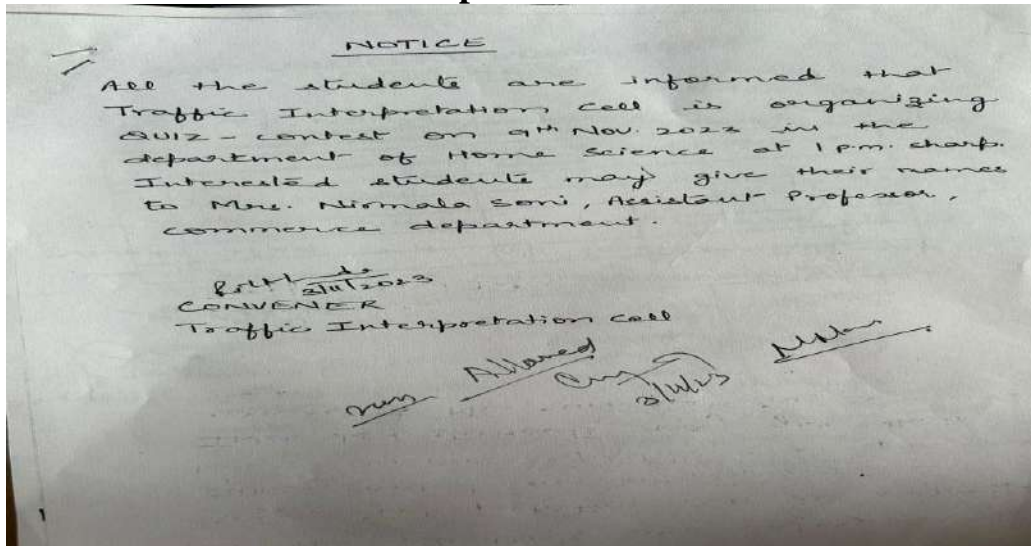 NOTICE
All the students are informed that
Traffic Interpretation Cell is organizing
QUIZ - contest on 9th Nov. 2023 in the
department of Home Science at 1 p.m. sharp.
Interested students may give their names
to Mrs. Nirmala Soni, Assistant Professor,
commerce department.
3/11/2023
CONVENER
Traffic Interpretation Cell
Allowed
3/11/23